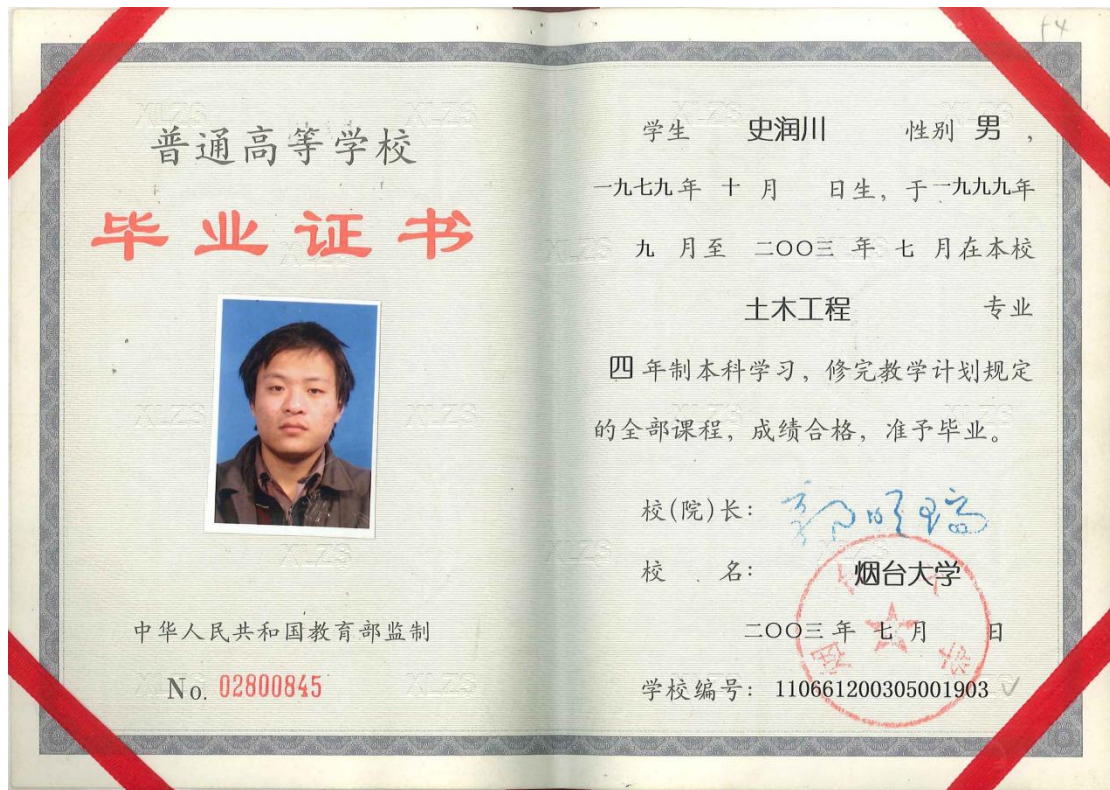 普通高等学校
毕业证书
中华人民共和国教育部监制
No. 02800845
学生 史润川 性别 男,
一九七九年 十 月 日生, 于一九九九年
九 月至 二〇〇三 年 七 月在本校
土木工程 专业
四 年制本科学习, 修完教学计划规定
的全部课程, 成绩合格, 准予毕业。
校(院)长:
校 名: 烟台大学
二〇〇三年 七 月 日
学校编号: 110661200305001903
XLZS